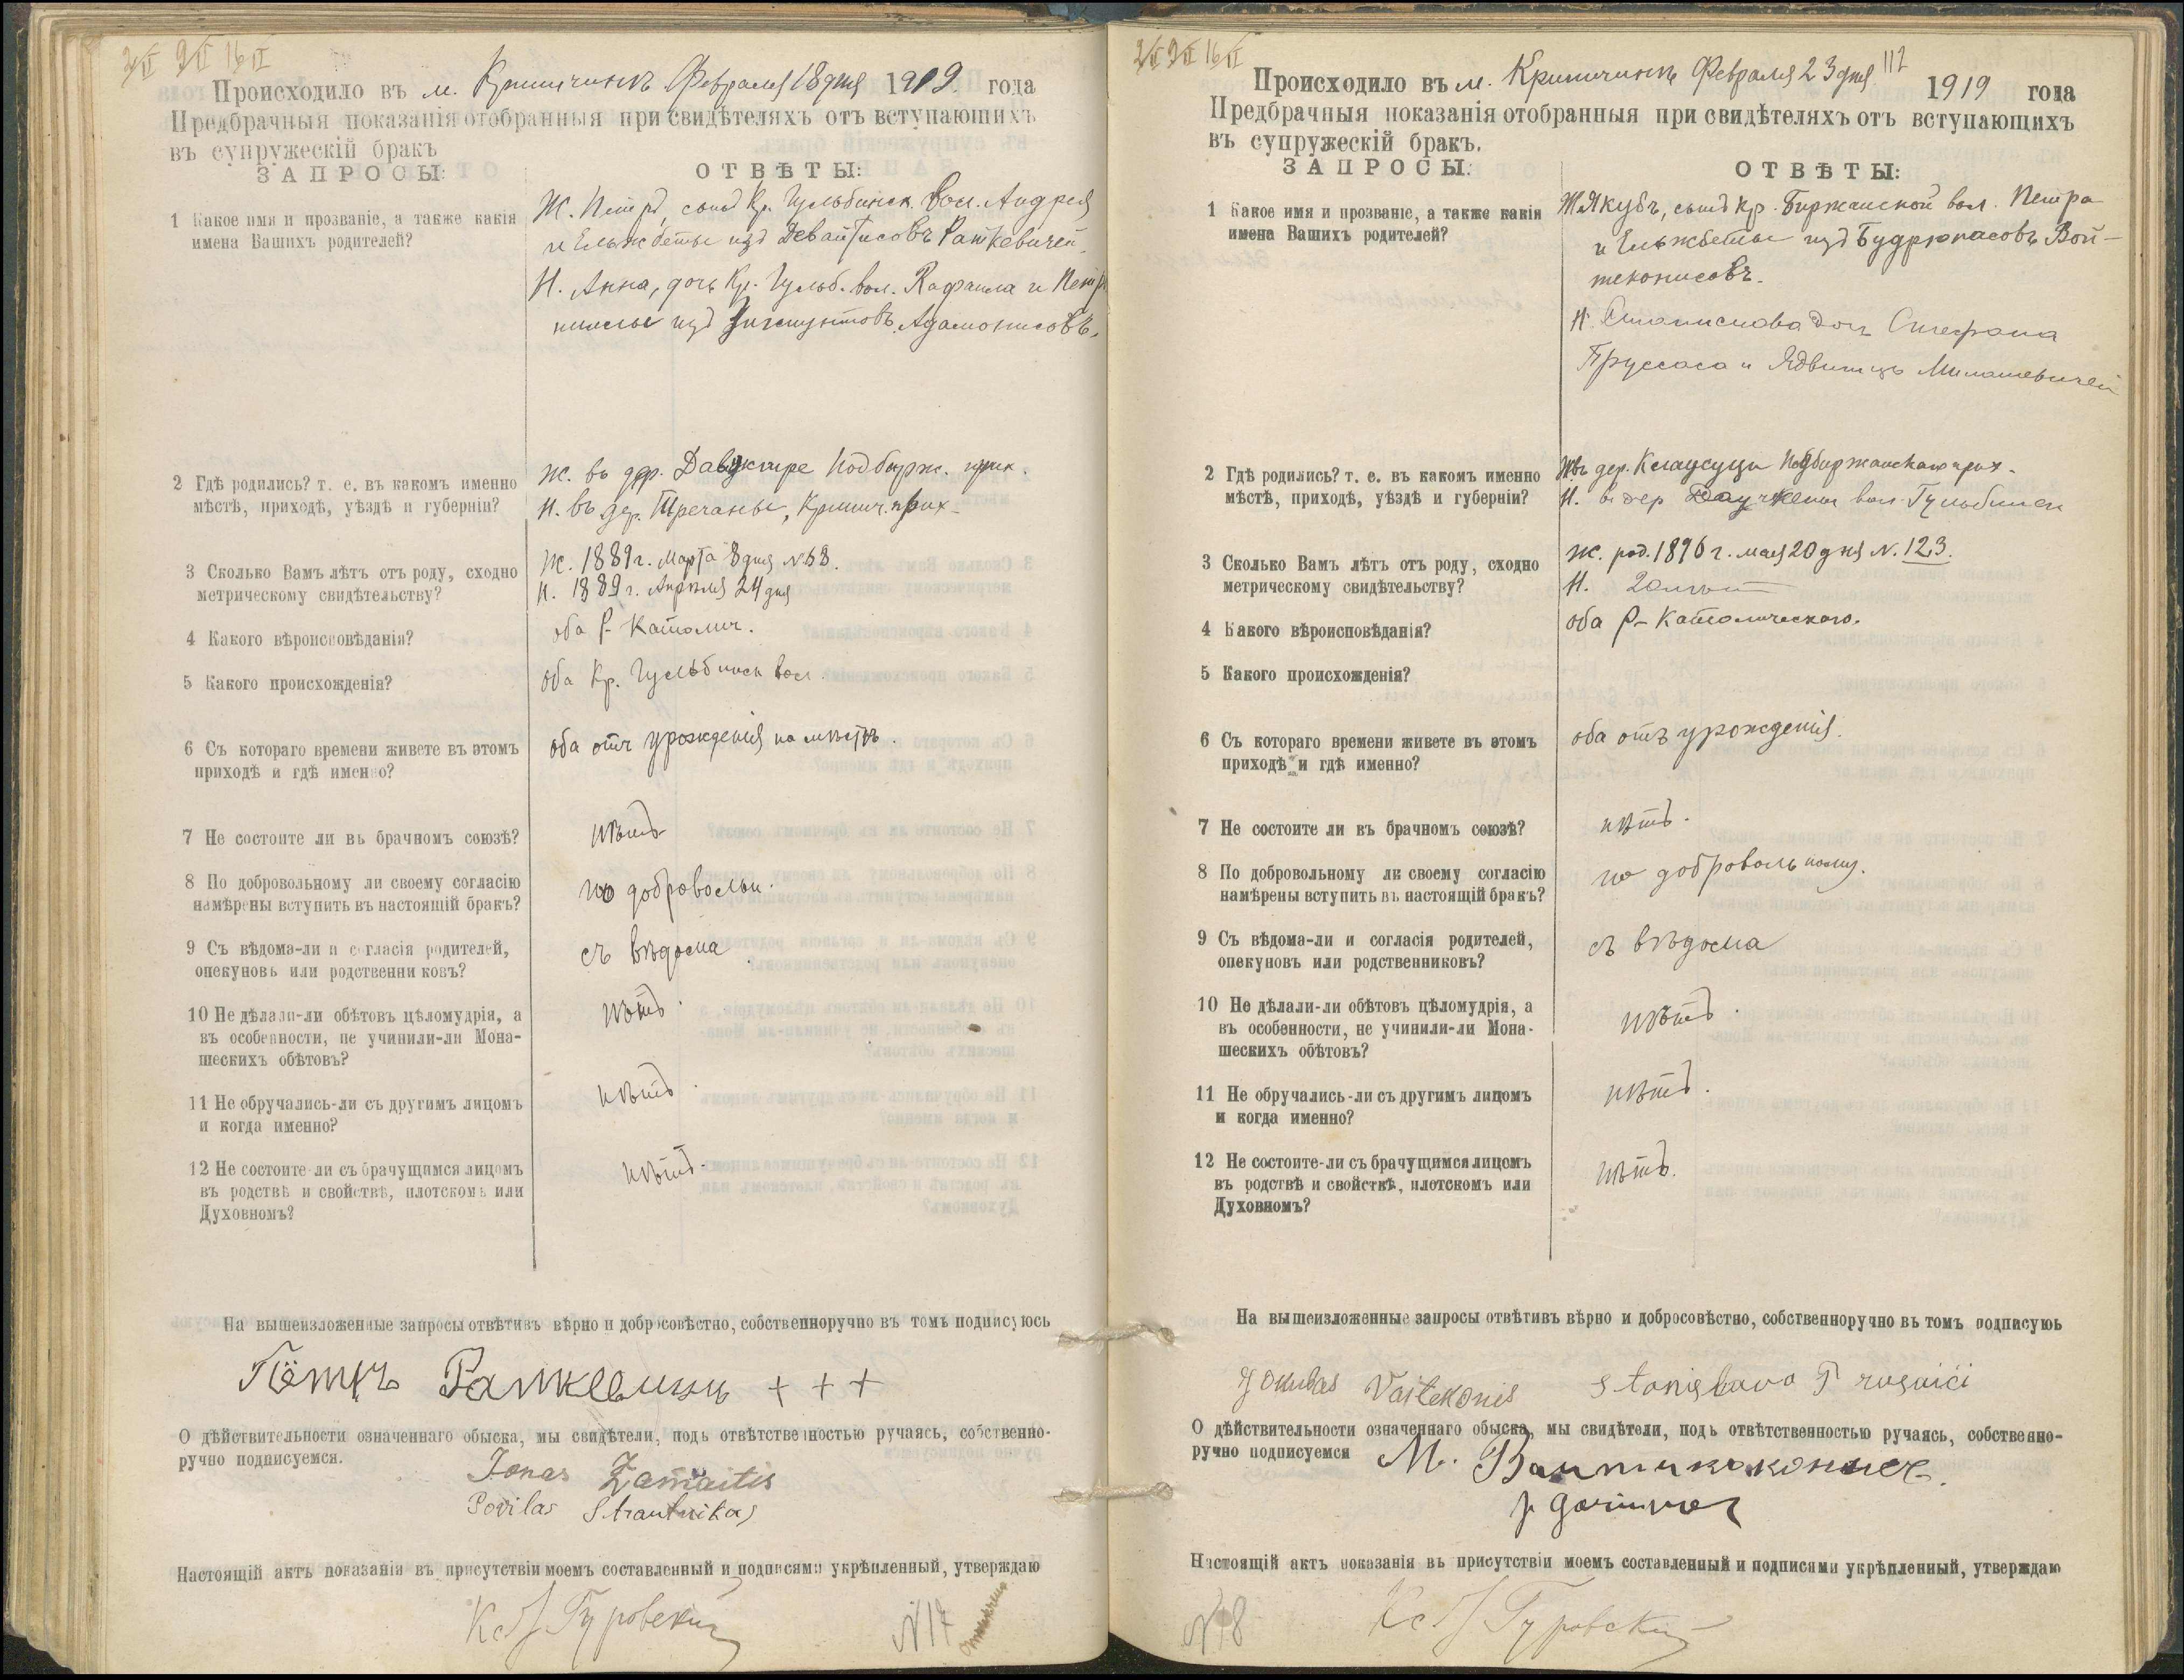 2/II 9/II 16/II
Происходило въ м. Кринчинъ Февраля 18 дня 1919. года
Предбрачныя показанія отобранныя при свидѣтеляхъ отъ вступающихъ
въ супружескій бракъ
ЗАПРОСЫ:
ОТВѢТЫ:
1 Какое имя и прозваніе, а также какія
имена Вашихъ родителей?
Ж. Петръ, сынъ Кр. Гульбинск. вол. Андрея
и Ельжбеты изъ Девайтисовъ Раткевичей.
Н. Анна, дочь Кр. Гульб. вол. Рафаила и Петро
нимлы изъ Адамонисовъ.
2 Гдѣ родились? т. е. въ какомъ именно
мѣстѣ, приходѣ, уѣздѣ и губерніи?
Ж. въ дер. Подбирж. прих.
Н. въ дер. Тречаны, Кринч. прих.
3 Сколько Вамъ лѣтъ отъ роду, сходно
метрическому свидѣтельству?
Ж. 1881 г. Марта 8 дня №58.
Н. 1889 г. Апрѣля 24 дня
4 Какого вѣроисповѣданія?
оба Р-Католич.
5 Какого происхожденія?
оба Кр. Гульбинск вол.
6 Съ котораго времени живете въ этомъ
приходѣ и гдѣ именно?
оба отъ урожденія на мѣстѣ.
7 Не состоите ли въ брачномъ союзѣ?
нѣтъ
8 По добровольному ли своему согласію
намѣрены вступить въ настоящій бракъ?
по добровольн.
9 Съ вѣдома-ли и согласія родителей,
опекуновъ или родственни ковъ?
съ вѣдома
10 Не дѣлали-ли обѣтовъ цѣломудрія, а
въ особенности, не учинили-ли Мона-
шескихъ обѣтовъ?
нѣтъ.
11 Не обручались-ли съ другимъ лицомъ
и когда именно?
нѣтъ.
12 Не состоите-ли съ брачущимся лицомъ
въ родствѣ и свойствѣ, плотскомъ или
Духовномъ?
нѣтъ.
На вышеизложенные запросы отвѣтивъ вѣрно и добросовѣстно, собственноручно въ томъ подписуюсь
Пётръ Раткевичъ + + +
О дѣйствительности означеннаго обыска, мы свидѣтели, подъ отвѣтственностью ручаясь, собственно-
ручно подписуемся.
Jonas Žamaitis
Povilas Strautnikas
Настоящій актъ показанія въ присутствіи моемъ составленный и подписями укрѣпленный, утверждаю
Гуровскій
№17
2/II 9/II 16/II
112
Происходило въ м. Кринчинѣ Февраля 23 дня 1919 года
Предбрачныя показанія отобранныя при свидѣтеляхъ отъ вступающихъ
въ супружескій бракъ.
ЗАПРОСЫ:
ОТВѢТЫ:
1 Какое имя и прозваніе, а также какія
имена Вашихъ родителей?
Ж. Якубъ, сынъ Кр. Биржанской вол. Петра
и Ельжбеты изъ Будрюнасовъ Вой-
теконисовъ.
Н. Станислова дочь Стефана
Пруссаса и Ядвиги изъ Милашевичей
2 Гдѣ родились? т. е. въ какомъ именно
мѣстѣ, приходѣ, уѣздѣ и губерніи?
Ж. въ дер. Клаусуци Подбиржанскаго прих.
Н. въ дер вол. Гульбинск
3 Сколько Вамъ лѣтъ отъ роду, сходно
метрическому свидѣтельству?
Ж. род. 1896 г. мая 20 дня N. 123.
Н. 20 лѣт
4 Какого вѣроисповѣданія?
оба Р-Католическаго.
5 Какого происхожденія?
6 Съ котораго времени живете въ этомъ
приходѣ и гдѣ именно?
оба отъ урожденія.
7 Не состоите ли въ брачномъ союзѣ?
нѣтъ.
8 По добровольному ли своему согласію
намѣрены вступить въ настоящій бракъ?
по добровольному.
9 Съ вѣдома-ли и согласія родителей,
опекуновъ или родственниковъ?
съ вѣдома
10 Не дѣлали-ли обѣтовъ цѣломудрія, а
въ особенности, не учинили-ли Мона-
шескихъ обѣтовъ?
нѣтъ.
11 Не обручались-ли съ другимъ лицомъ
и когда именно?
нѣтъ.
12 Не состоите-ли съ брачущимся лицомъ
въ родствѣ и свойствѣ, плотскомъ или
Духовномъ?
нѣтъ.
На вышеизложенные запросы отвѣтивъ вѣрно и добросовѣстно, собственноручно въ томъ подписуюь
Jokubas Vaitekonis Stanislava Prusaici
О дѣйствительности означеннаго обыска, мы свидѣтели, подъ отвѣтственностью ручаясь, собственно-
ручно подписуемся М.
Настоящій актъ показанія въ присутствіи моемъ составленный и подписями укрѣпленный, утверждаю
Гуровскій
№18